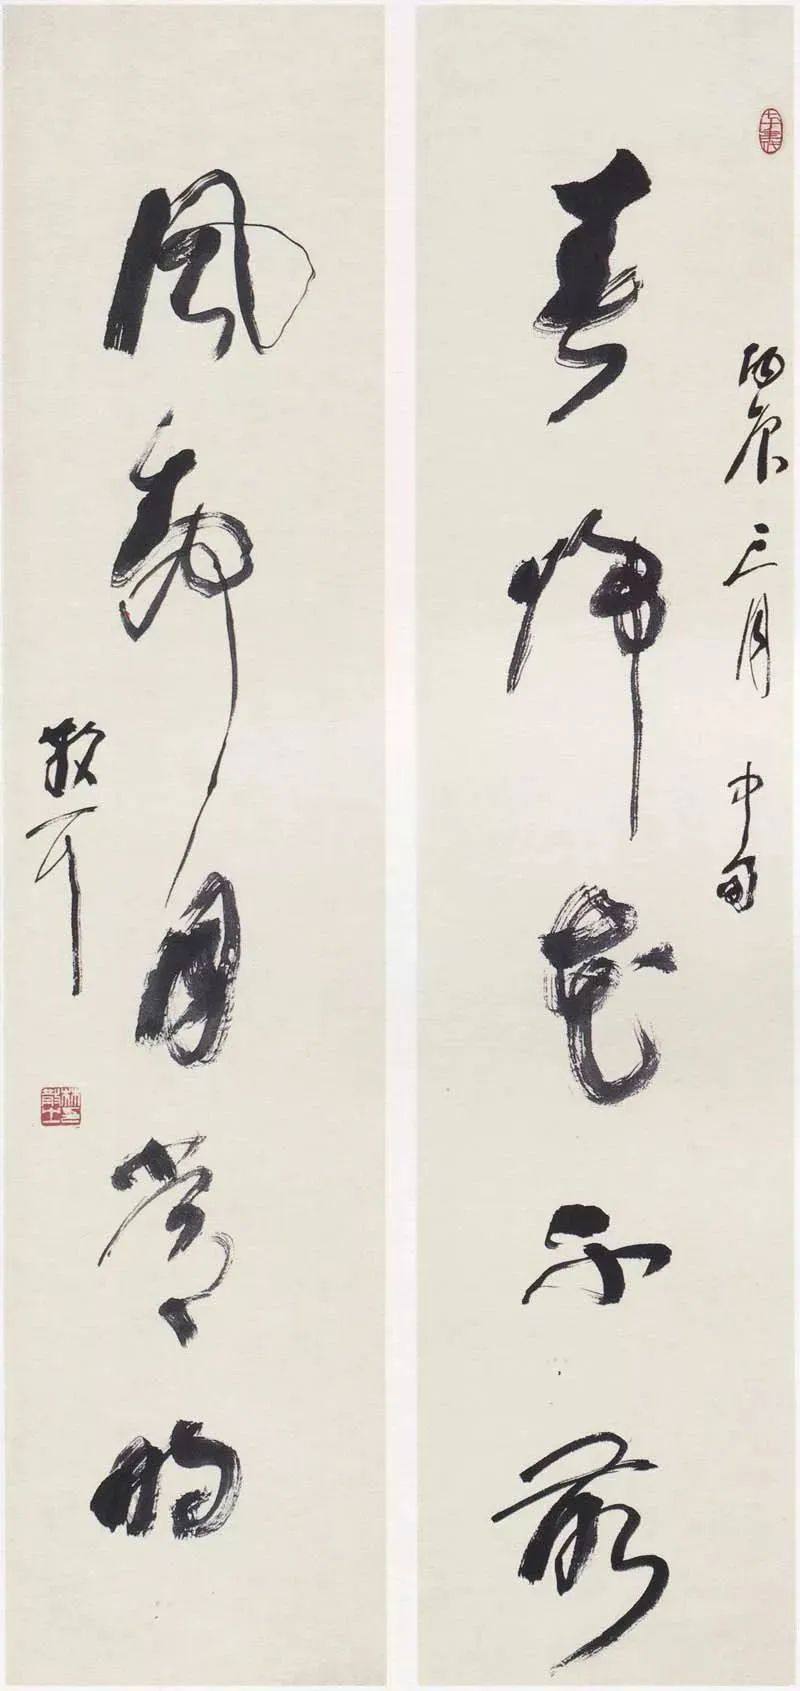 丙辰三月中旬
春歸花不落
風靜月常明
散耳